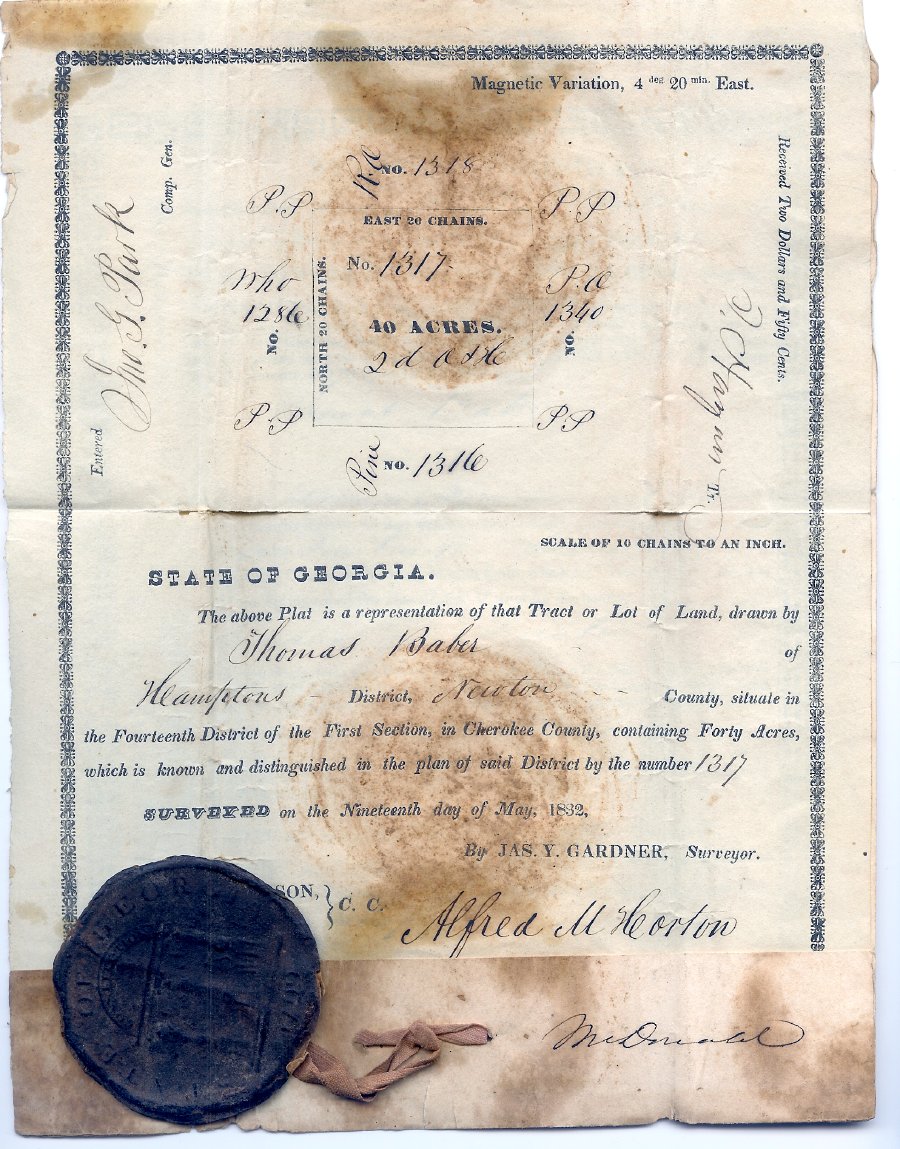 Magnetic Variation, 4 deg 20 min. East.
Comp. Gen.
Jno. G. Park
Entered
Received Two Dollars and Fifty Cents.
Tr.
No. 1318
P.P
P P
EAST 20 CHAINS.
NORTH 20 CHAINS.
No. 1317
Who
1286
No.
P.O
1340
No.
40 ACRES.
2d
P.P
P P
Pine No. 1316
SCALE OF 10 CHAINS TO AN INCH.
STATE OF GEORGIA.
The above Plat is a representation of that Tract or Lot of Land, drawn by
Thomas Baber of
Hamptons District, Newton County, situate in
the Fourteenth District of the First Section, in Cherokee County, containing Forty Acres,
which is known and distinguished in the plan of said District by the number 1317
SURVEYED on the Nineteenth day of May, 1832,
By JAS. Y. GARDNER, Surveyor.
SON, } C. C.
Alfred M Horton
McDonald